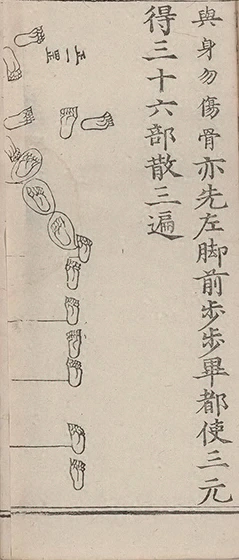 與身勿傷骨亦先左脚前步步畢都使三元
得三十六部散三遍